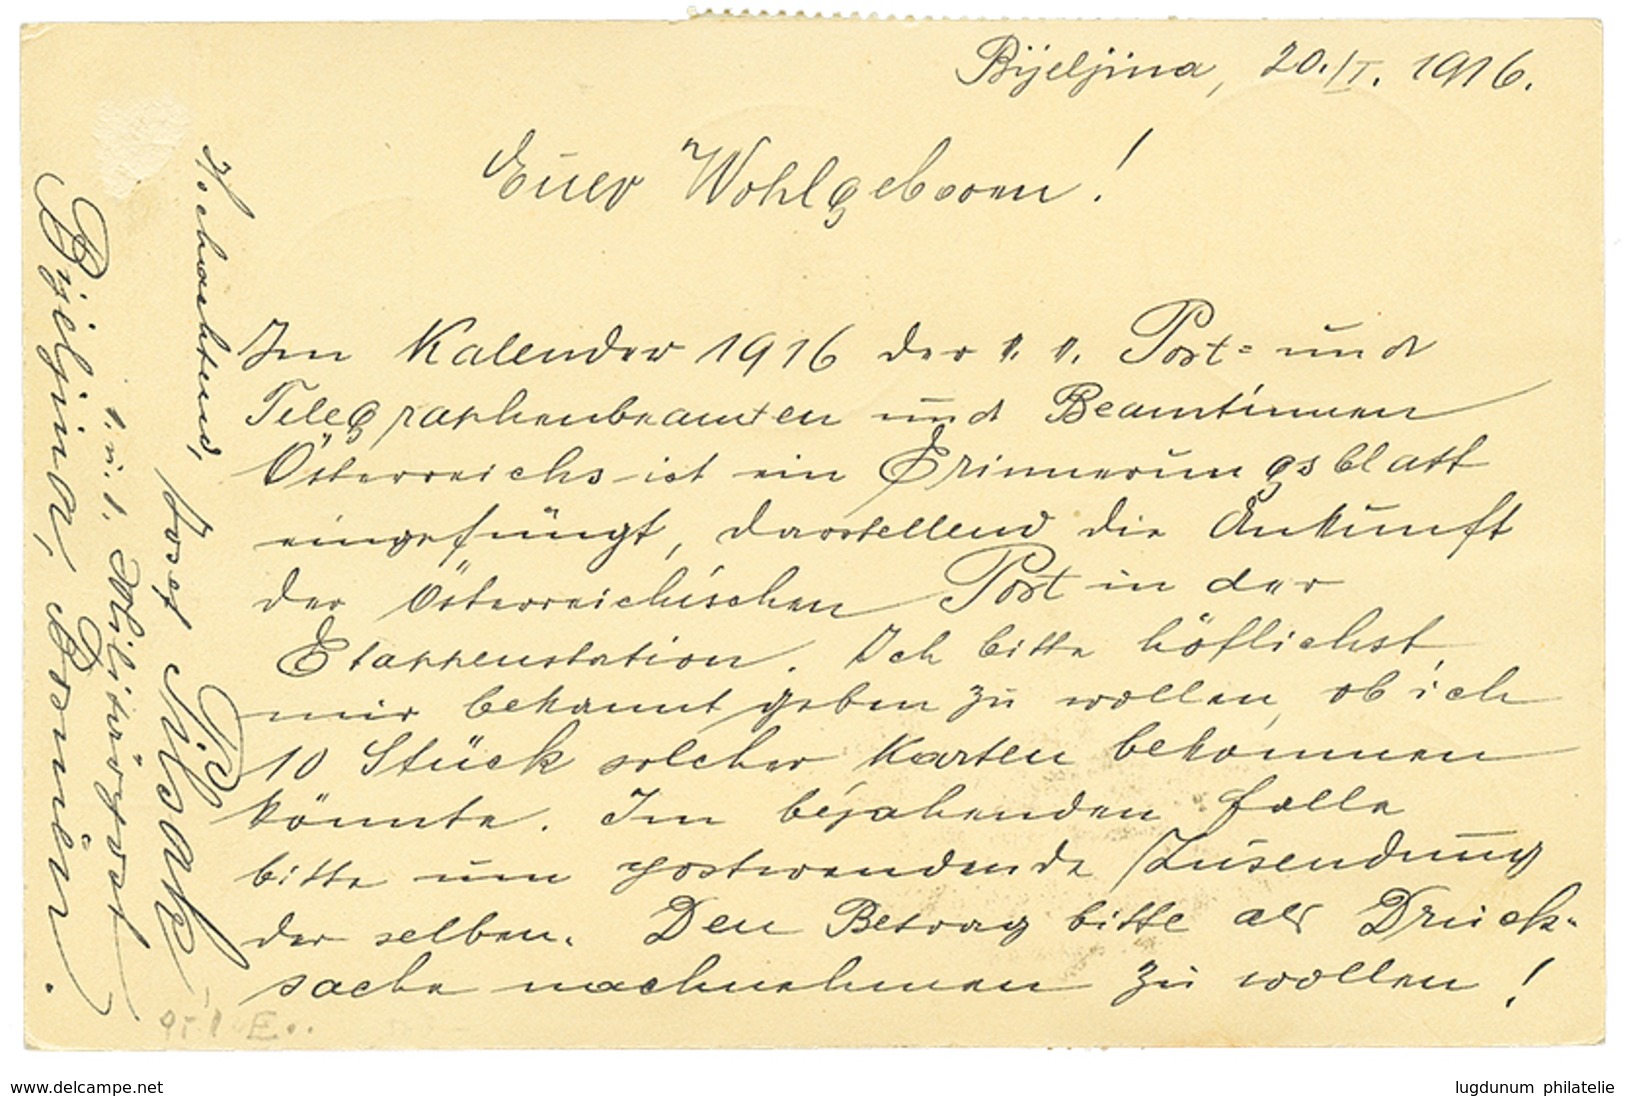 Bijeljina, 20./I. 1916.
Euer Wohlgeboren!
Im Kalender 1916 der k. k. Post- und
Telegraphenbeamten und Beamtinnen
Österreichs ist ein Erinnerungsblatt
eingefüngt, darstellend die Ankunft
der österreichischen Post in der
Etappenstation. Ich bitte höflichst
mir bekannt geben zu wollen, ob ich
10 Stück solcher Karten bekommen
könnte. Im bejahenden Falle
bitte um postwendende Zusendung
der selben. Den Betrag bitte als Druck-
sache nachnehmen zu wollen!
Hochachtend,
Josef
k. u. k. Militärpost
Bijeljina, Bosnien.
www.delcampe.net
lugdunum philatelie